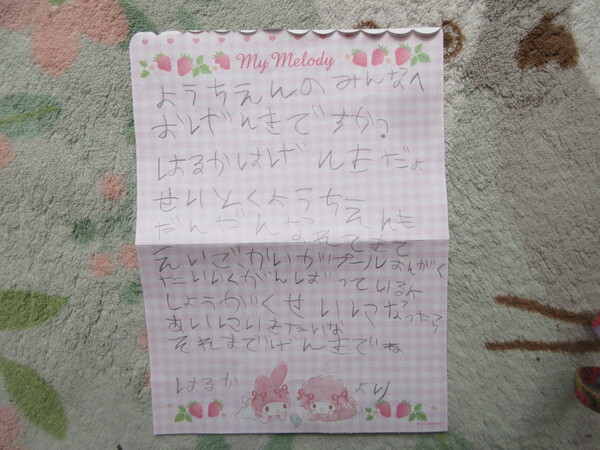 My Melody
ようちえんのみんなへ
おげんきですか?
はるかはげんきだよ
せいとくようちえんも
だんだんなれてきて
えいごかいがプールおんがく
たいいくがんばっているよ
しょうがくせいになったら
あいにいきたいな
それまでげんきでね
はるか より